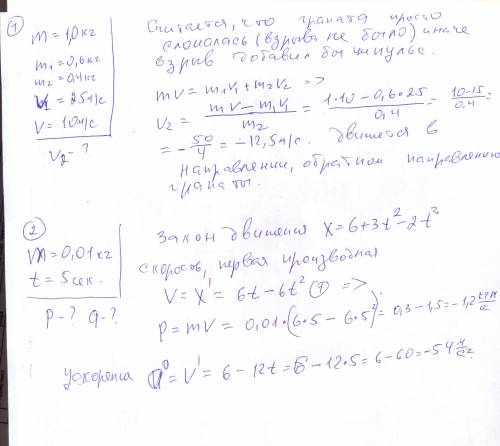 ①
m = 1,0 кг
m₁ = 0,6 кг
m₂ = 0,4 кг
V₁ = 25 м/с
V = 10 м/с
V₂ - ?
Считается, что граната просто
сломалась (взрыва не было) иначе
взрыв добавил бы импульс.
mV = m₁V₁ + m₂V₂ =>
V₂ = (mV - m₁V₁)/m₂ = (1·10 - 0,6·25)/0,4 = (10-15)/0,4 =
= -50/4 = -12,5 м/с. движется в
направлении, обратном направлению
гранаты.
②
m = 0,01 кг
t = 5 сек.
p - ? a - ?
Закон движения x = 6 + 3t² - 2t³
скорость, первая производная
V = x' = 6t - 6t² =>
p = mV = 0,01·(6·5 - 6·5²) = 0,3 - 1,5 = -1,2 кгм/с
ускорение a = V' = 6 - 12t = 6 - 12·5 = 6 - 60 = -54 м/с²